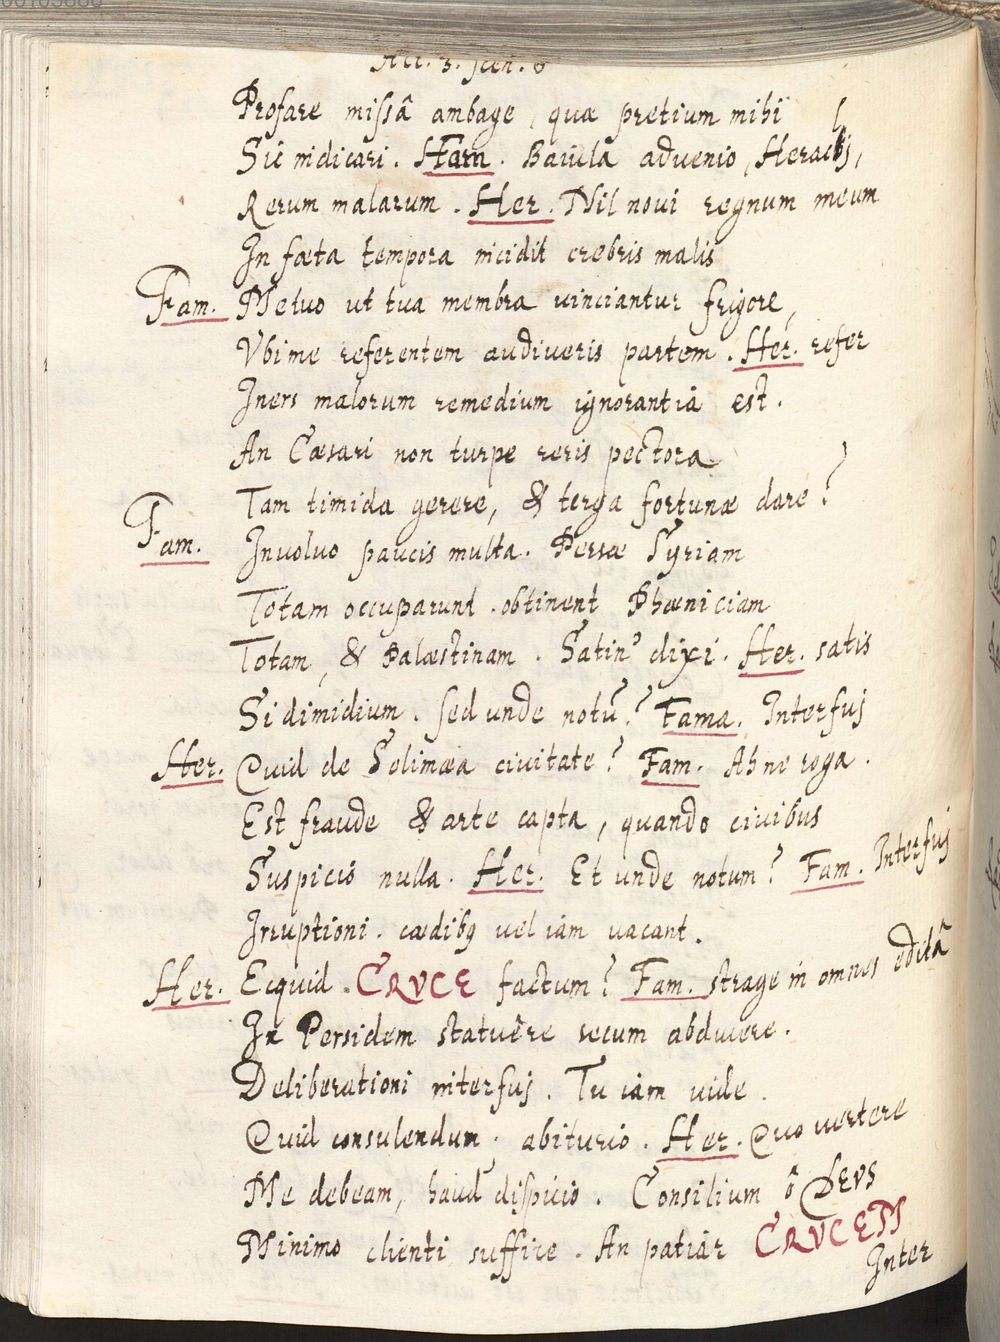 Act. 3. scen. 6
Profare missâ ambage, quæ pretium mihi
Sic indicari. Fam. Baiula advenio, Heraclij,
Rerum malarum. Her. Nil novi regnum meum
In fœta tempora incidit crebris malis
Fam. Metuo ut tua membra vinciantur frigore,
Vbi me referentem audiveris partem. Her. refer
Iners malorum remedium ignorantia est.
An Cæsari non turpe reris pectora
Tam timida gerere, & terga fortunæ dare?
Fam. Involuo paucis multa. Persæ Syriam
Totam occuparunt. obtinent Phœniciam
Totam, & Palæstinam. Satin' dixi. Her. satis
Si dimidium. sed unde notū? Fama. Interfuj
Her. Quid de Solimæa civitate? Fam. Ah ne roga.
Est fraude & arte capta, quando civibus
Suspicio nulla. Her. Et unde notum? Fam. Interfuj
Irruptioni. cædibq vel iam vacant.
Her. Ecquid. CRVCE factum? Fam. strage in omnes editâ
In Persidem statuêre secum abducere.
Deliberationi interfuj. Tu iam vide
Quid consulendum. abiturio. Her. Quo vertere
Me debeam, haud dispicio. Consilium ô DEVS
Minimo clienti suffice. An patiar CRVCEM
Inter